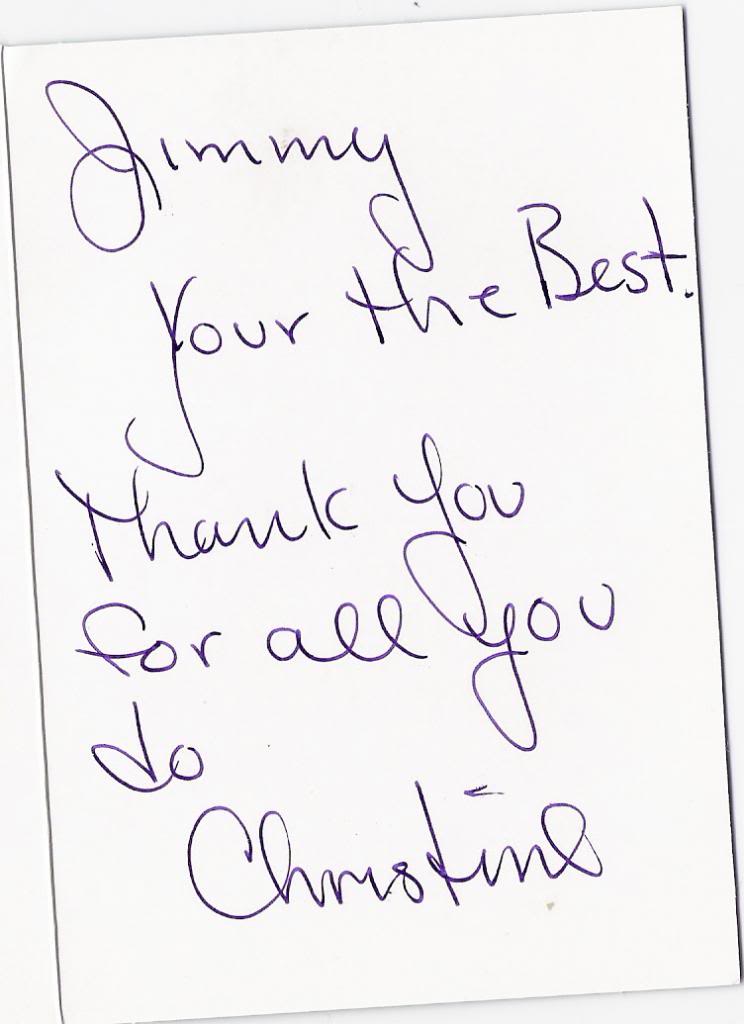 Jimmy
Your the Best.
Thank you
for all you
do
Christine